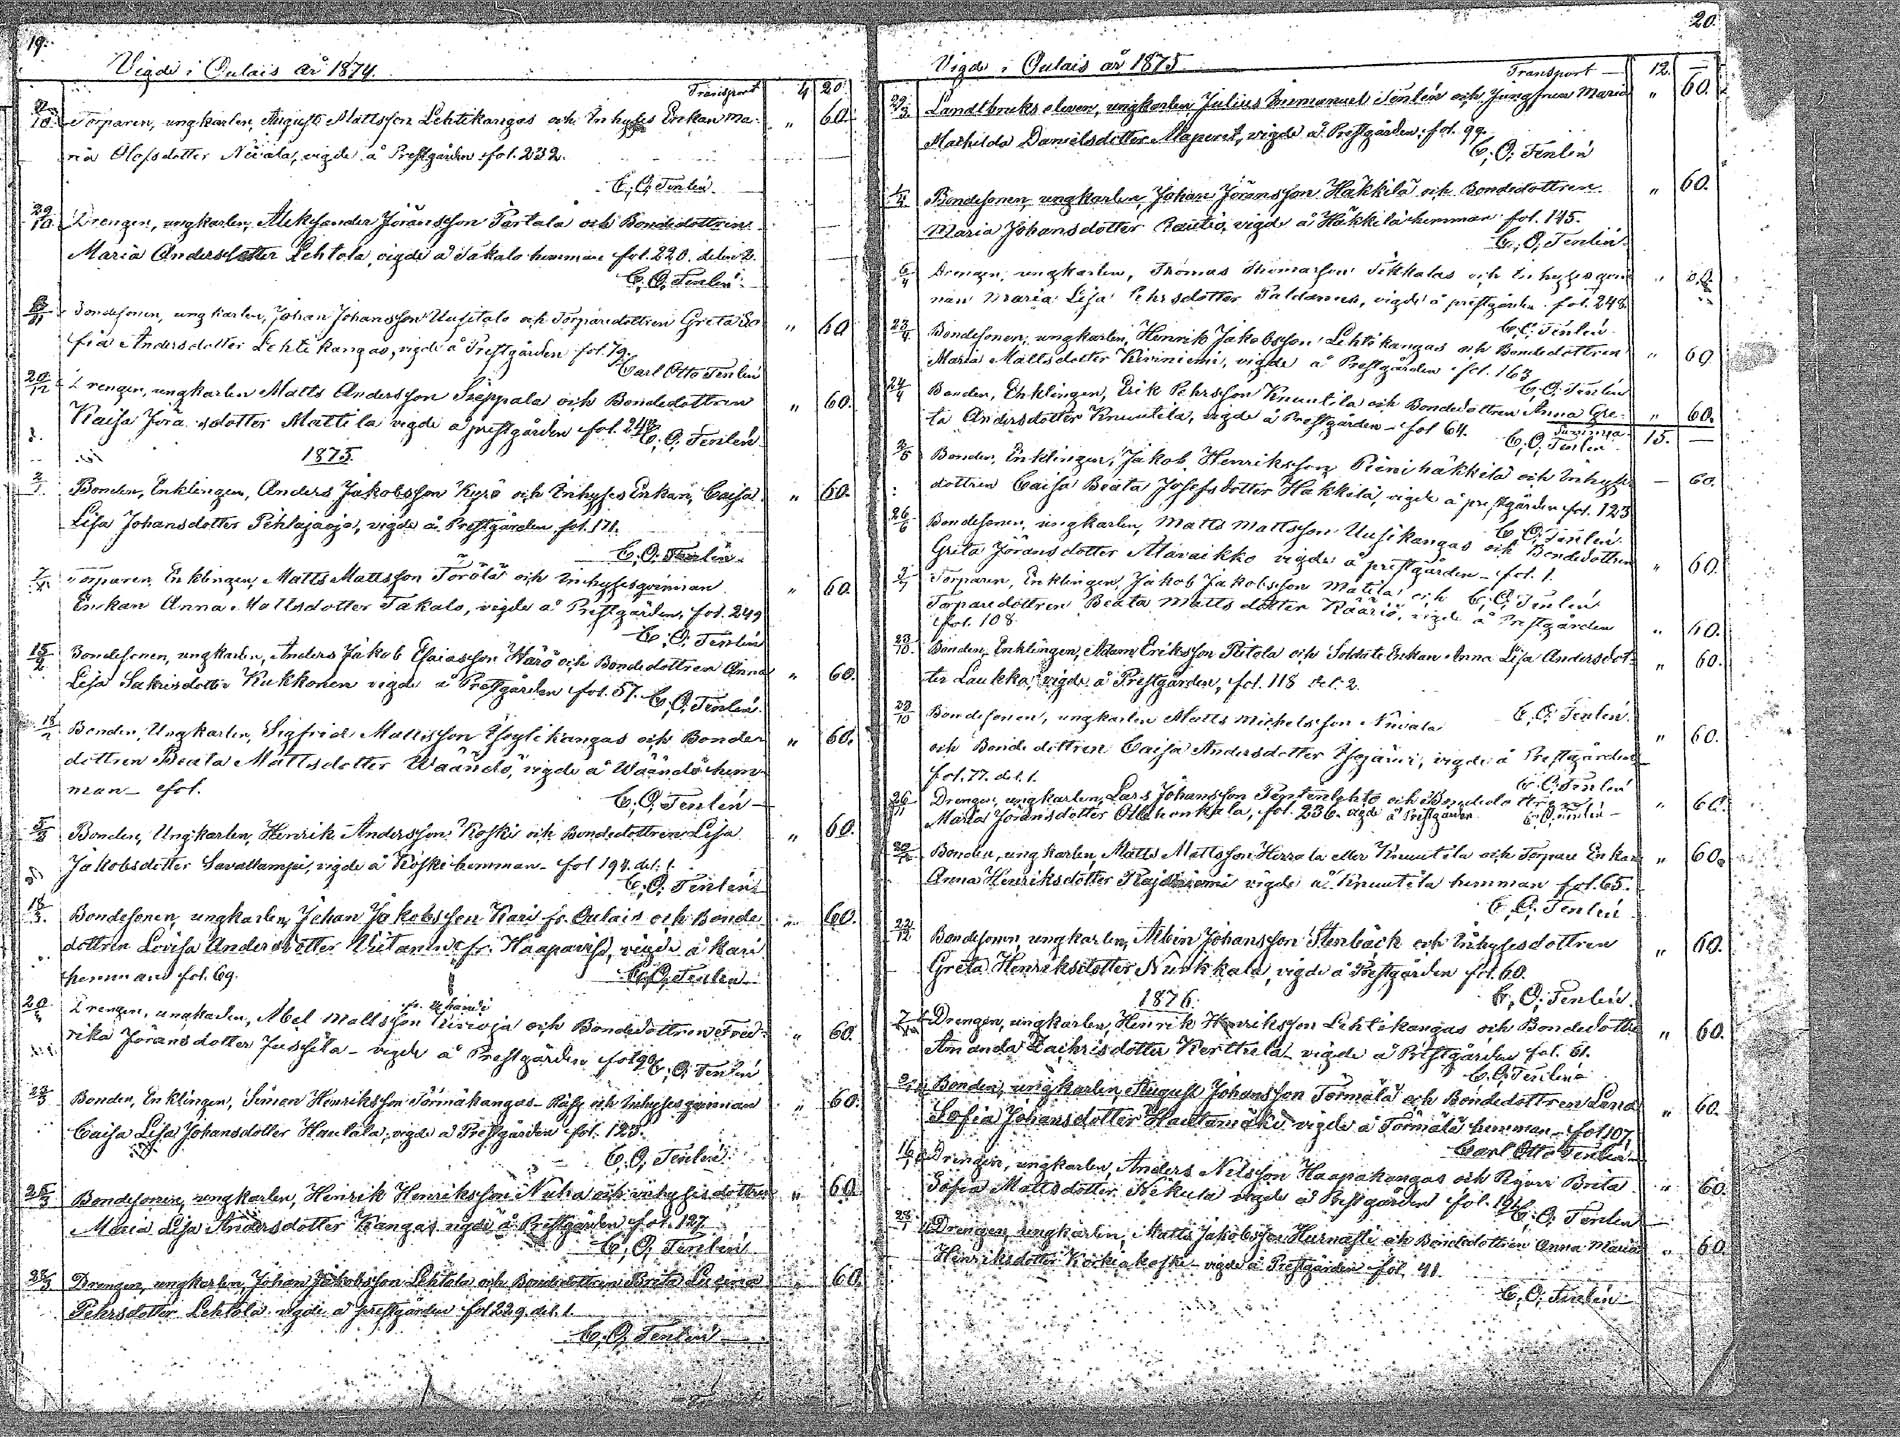 19.
Vigde i Oulais år 1874.
Transport 4 20
10 Torparen, ungkarlen, August Mattsson Lehtikangas och Inhyses Enkan Ma- " 60.
ria Olofsdotter Nivala, vigde å Prestgården fol. 232.
C. O. Tenlén.
29/10 Drengen, ungkarlen, Aleksander Jöransson Partala och Bondedottren
Maria Andersdotter Lehtola, vigde å Takalo hemman fol. 220. delen 2.
C. O. Tenlén.
11 Bondesonen, ungkarlen, Johan Johansson Uusitalo och Torparedottren Greta So- " 60
fia Andersdotter Lehtikangas, vigde å Prestgården fol. 79.
Carl Otto Tenlén
12 Drengen, ungkarlen Matts Andersson Seppälä och Bondedottren " 60.
Kaisa Jöransdotter Mattila vigde å prestgården fol. 248.
C. O. Tenlén
1875.
2/1 Bonden, Enklingen, Anders Jakobsson Kyrö och Inhyses Enkan, Caisa " 60.
Lisa Johansdotter Pihlajaoja, vigde å Prestgården fol. 171.
C. O. Tenlén
Torparen, Enklingen, Matts Mattsson Törölä och Inhysesqvinnan " 60.
Enkan Anna Mattsdotter Takalo, vigde å Prestgården, fol. 249
C. O. Tenlén
15/2 Bondesonen, ungkarlen, Anders Jakob Esaiasson Wärö och Bondedottren Anna " 60.
Lisa Sakrisdotter Kukkonen vigde å Prestgården fol. 57.
C. O. Tenlén.
18/2 Bonden, Ungkarlen, Sigfrid Mattsson Ypylikangas och Bonde- " 60.
dottren Beata Mattsdotter Wäändö, vigde å Wäändö hem-
man - fol.
C. O. Tenlén
5/3 Bonden, Ungkarlen, Henrik Andersson Koski och Bondedottren Lisa " 60.
Jakobsdotter Savallampi, vigde å Koski hemman - fol 194. del. 1.
C. O. Tenlén
18/3. Bondesonen, ungkarlen, Johan Jakobsson Kari fr. Oulais och Bonde- " 60.
dottren Lovisa Andersdotter Witamme fr. Haapavisi, vigde å Kari
hemman fol. 69.
C. O. Tenlén
Drengen, ungkarlen, Abel Mattsson Kirivoja och Bondedottren Fred- " 60.
rika Jöransdotter Jussila - vigde å Prestgården fol 90
C. O. Tenlén
Bonden, Enklingen, Simon Henriksson Törmäkangas - Räihä och Inhysesqvinnan " 60.
Caisa Lisa Johansdotter Hautala, vigde å Prestgården fol. 128.
C. O. Tenlén
25/3 Bondesonen, ungkarlen, Henrik Henriksson Nuha och inhysesdottren " 60.
Maria Lisa Andersdotter Kangas, vigde å Prestgården fol. 127.
C. O. Tenlén
28/3 Drengen, ungkarlen, Johan Jakobsson Lehtola och Bondedottren Brita Lucina " 60.
Pehrsdotter Lehtola vigde å prestgården fol 229. del. 1.
C. O. Tenlén
20.
Vigde i Oulais år 1875
Transport 12. —
29/3 Landtbruks eleven, ungkarlen, Julius Immanuel Tenlén och Jungfrun Maria " 60.
Mathilda Danielsdotter Maperit, vigde å Prestgården, fol. 99.
C. O. Tenlén
1/4 Bondesonen, ungkarlen, Johan Jöransson Häkkilä och Bondedottren " 60.
Maria Johansdotter Rautio, vigde å Häkkilä hemman fol. 115.
C. O. Tenlén
6/4 Drengen, ungkarlen, Thomas Thomasson Tikkalas och Inhysesqvin-
nan Maria Lisa Pehrsdotter Paldanius, vigde å prestgården fol. 248
C. O. Tenlén
23/4 Bondesonen, ungkarlen, Henrik Jakobsson Lehtikangas och Bondedottren " 60
Maria Mattsdotter Kiviniemi, vigde å Prestgården fol. 163
C. O. Tenlén
24/4 Bonden, Enklingen, Erik Pehrsson Knuutila och Bondedottren Anna Gre- " 60.
ta Andersdotter Knuutila, vigde å Prestgården - fol 64.
Summa 15. —
C. O. Tenlén
2/5 Bonden, Enklingen, Jakob Henriksson Pienihäkkilä och Inhyses — 60.
dottren Caisa Beata Josefsdotter Häkkilä, vigde å prestgården fol. 123
C. O. Tenlén
26/6 Bondesonen, ungkarlen, Matts Mattsson Uusikangas och Bondedottren " 60.
Greta Jöransdotter Mavaikko vigde å prestgården - fol. 1.
C. O. Tenlén
Torparen, Enklingen, Jakob Jakobsson Matila och
Torparedottren Beata Mattsdotter Kääriö, vigde å Prestgården " 60.
fol. 108.
23/10. Bonden, Enklingen, Adam Eriksson Pitola och Soldats Enkan Anna Lisa Andersdot- " 60.
ter Laukka, vigde å Prestgården, fol. 118 del. 2.
C. O. Tenlén
29/10 Bondesonen, ungkarlen Matts Michelsson Nivala " 60.
och Bondedottren Caisa Andersdotter Isojärvi, vigde å Prestgården
fol. 77. del. 1.
C. O. Tenlén
26/11 Drengen, ungkarlen, Lars Johansson Pentenlehto och Bondedottren " 60.
Maria Jöransdotter Ollahonkala, fol. 236. vigde å Prestgården
C. O. Tenlén
Bonden, ungkarlen, Matts Mattsson Herrala eller Knuutila och Torpare Enkan " 60.
Anna Henriksdotter Rajaniemi vigde å Knuutila hemman fol. 65.
C. O. Tenlén
22/12 Bondesonen, ungkarlen, Albin Johansson Stenbäck och Inhysesdottren " 60.
Greta Henriksdotter Nurkkala, vigde å Prestgården fol. 60.
C. O. Tenlén.
1876.
Drengen, ungkarlen, Henrik Henriksson Lehtikangas och Bondedottren " 60.
Amanda Zachrisdotter Kerttula vigde å Prestgården fol. 61.
C. O. Tenlén
Bonden, ungkarlen, August Johansson Törmälä och Bondedottren Lana " 60.
Sofia Johansdotter Hautamäki vigde å Törmälä hemman - fol 107.
Carl Otto Tenlén
16/1 Drengen, ungkarlen, Anders Nilsson Haapakangas och Pigan Brita " 60.
Sofia Mattsdotter Nikula vigde å Prestgården fol. 192.
C. O. Tenlén
Drengen, ungkarlen, Matts Jakobsson Hurnasti och Bondedottren Anna Maria " 60
Henriksdotter Korkiakoski - vigde å Prestgården fol. 41.
C. O. Tenlén